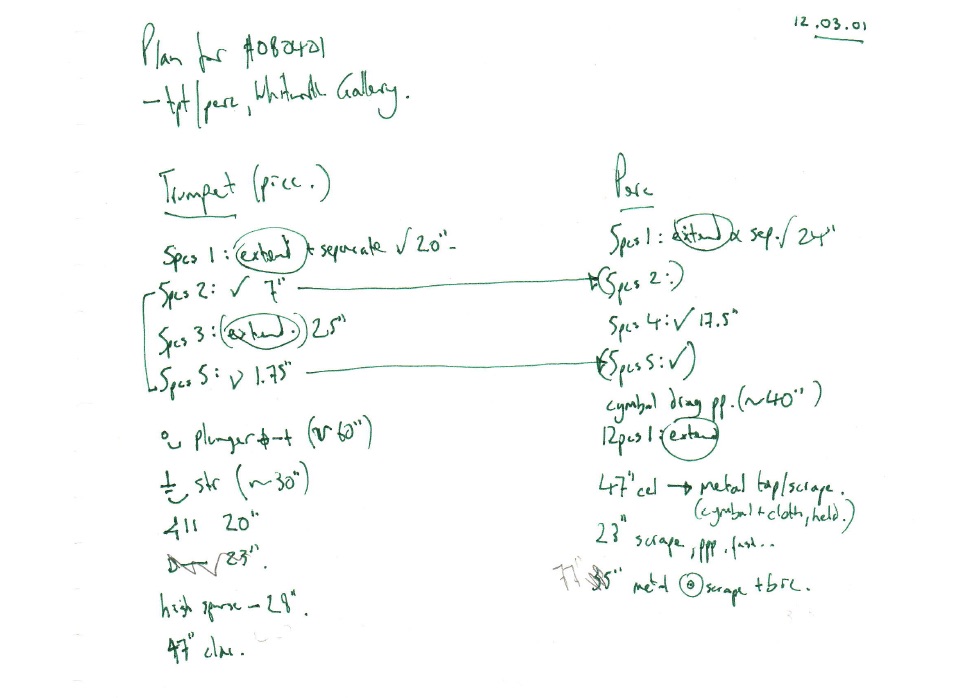 12.03.01
Plan for #080401
- tpt/perc, Whitworth Gallery.
Trumpet (picc.)
5pcs 1: extend + separate √ 20"
5pcs 2: √ 7"
5pcs 3: (extend.) 25"
5pcs 5: √ 1.75"
plunger (~60")
str (~30")
20"
23".
high sparse - 28".
47"
Perc
5pcs 1: extend & sep. √ 24"
(5pcs 2:)
5pcs 4: √ 17.5"
(5pcs 5: √)
cymbal drag pp. (~40")
12pcs 1: extend
47" cel → metal tap/scrape.
(cymbal + cloth, held.)
23" scrape, ppp, fast..
77" metal scrape +